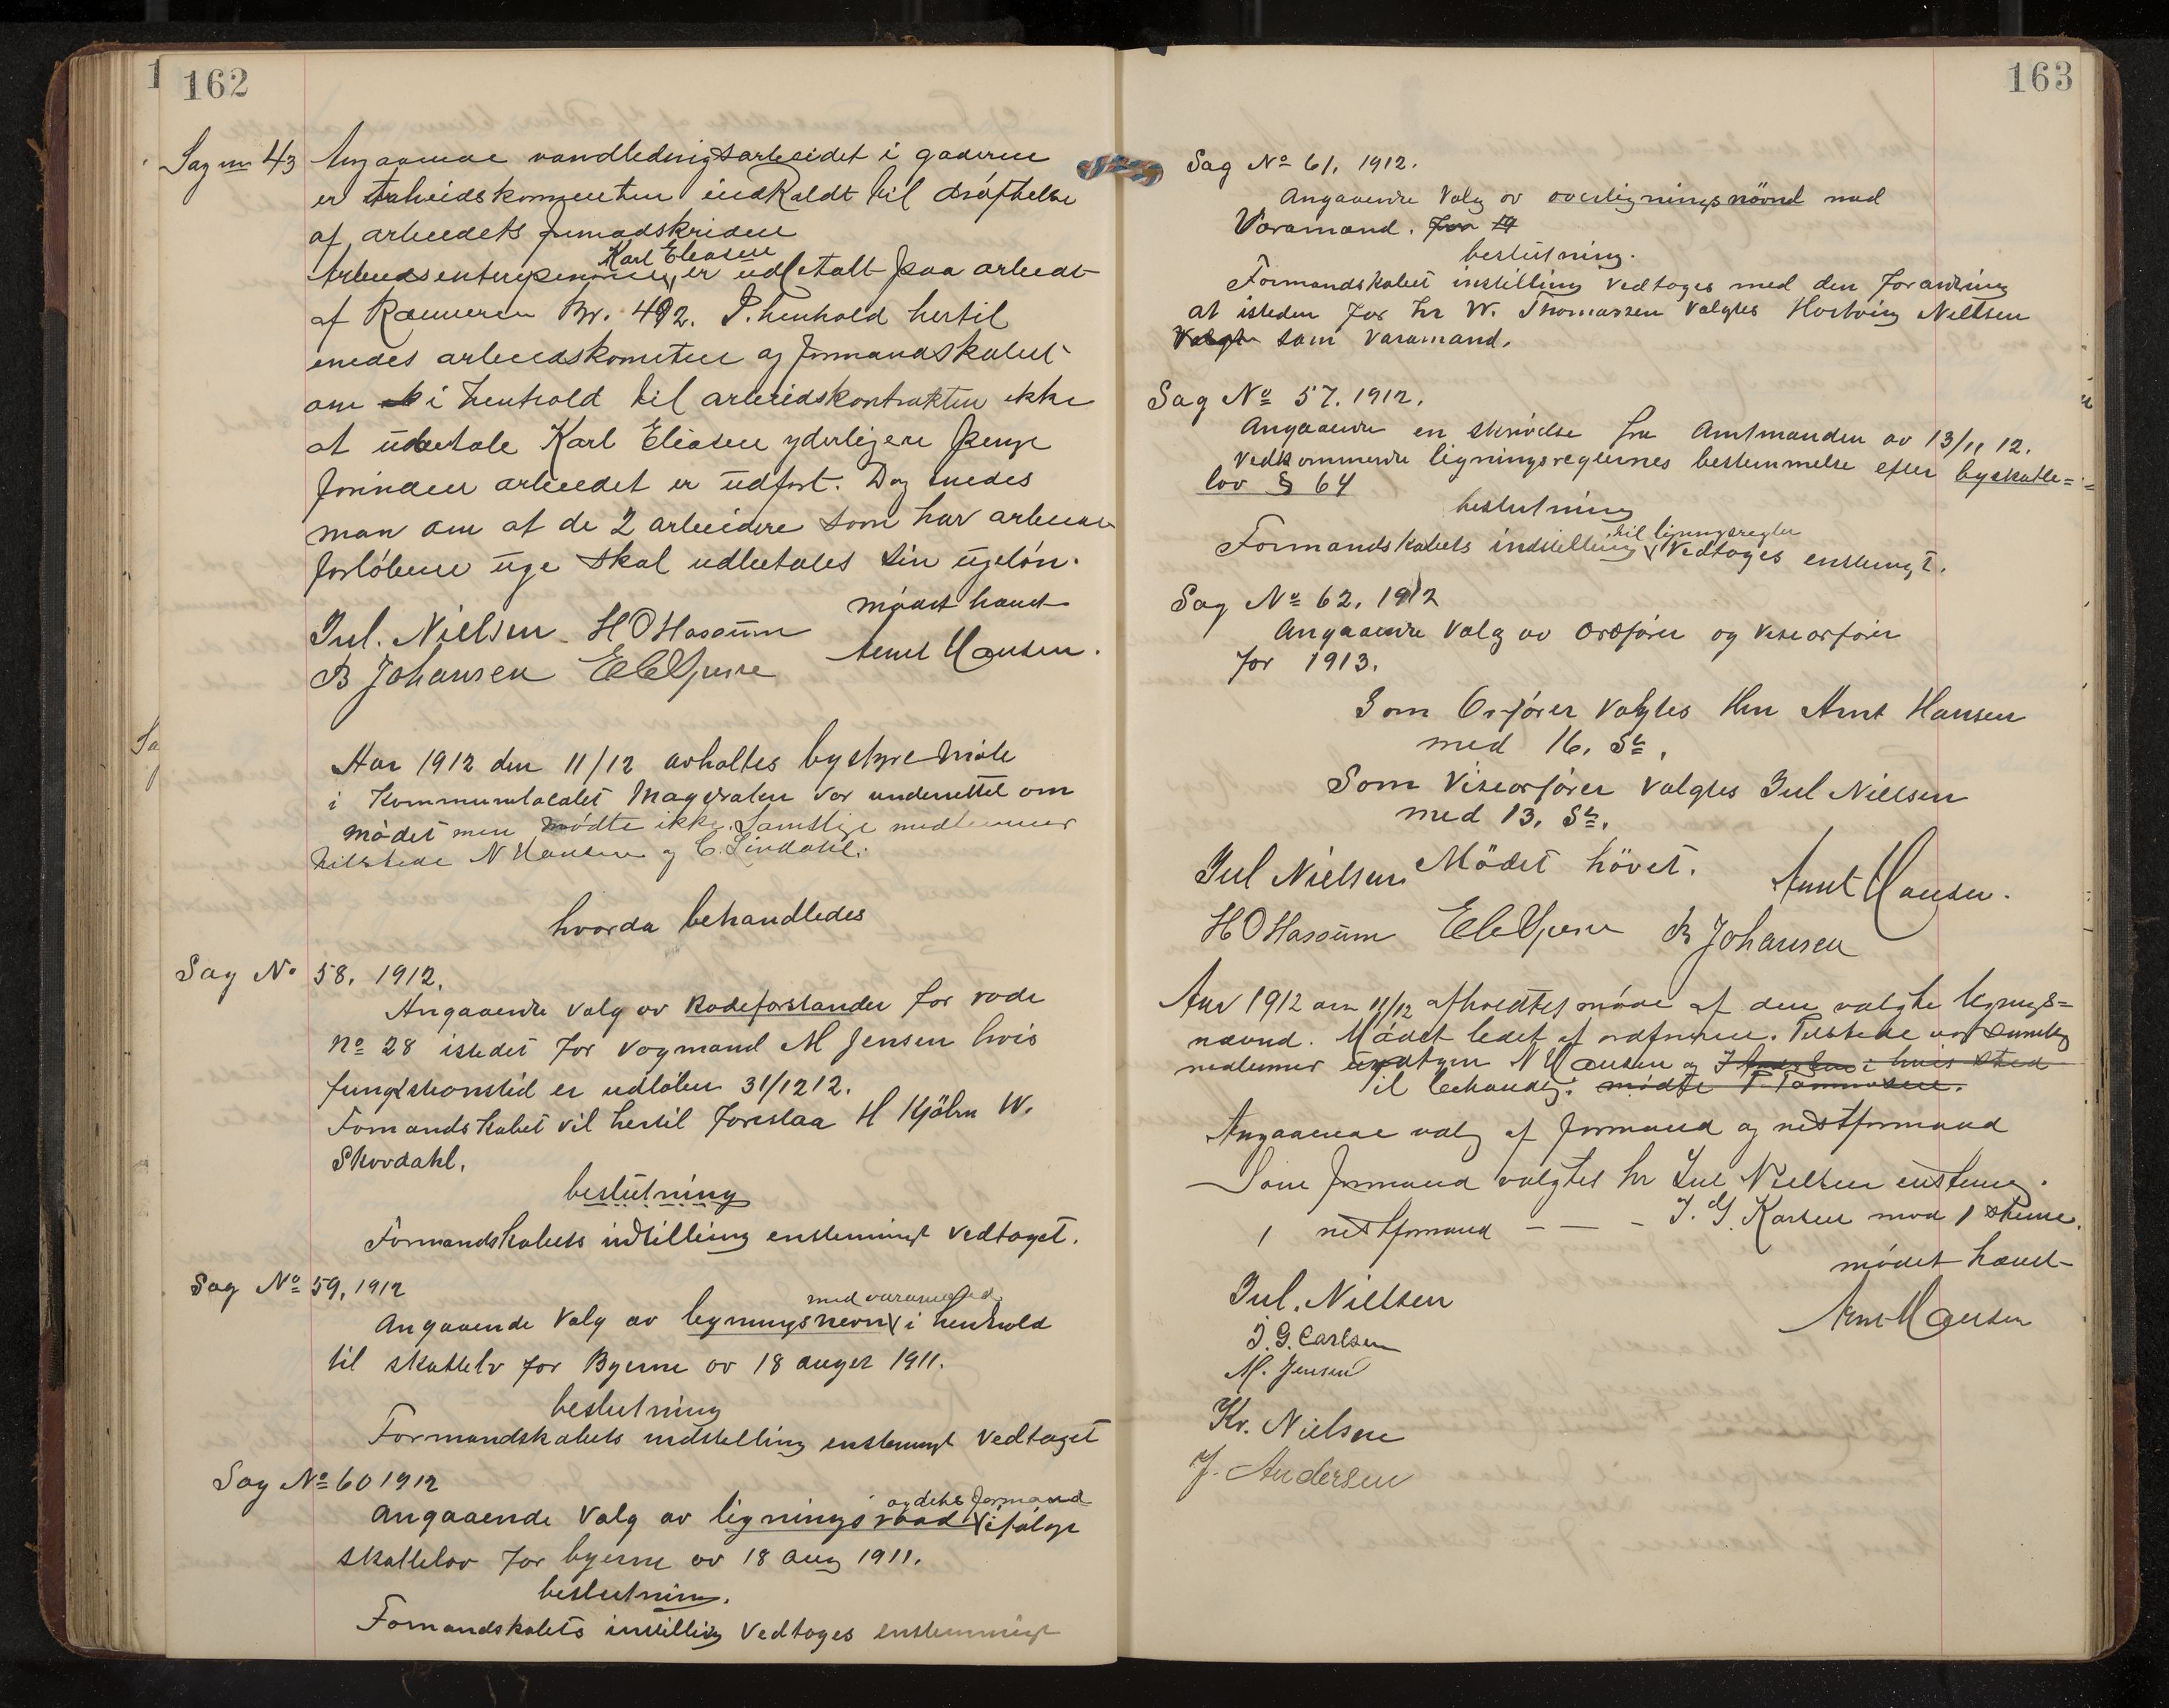 162
Sag nr 43 Angaaende vandledningsarbeidet i gaderne
er Arbeidskomiteen indkaldt til drøftelse
af arbeidets fremadskriden
Karl Eliasen
er udbetalt paa arbeidet
af Kæmneren Kr. 492. I henhold hertil
enedes arbeidskomiteen og formandskabet
om i henhold til arbeidskontrakten ikke
at udbetale Karl Eliasen yderligere penge
forinden arbeidet er udført. Dog enedes
man om at de 2 arbeidere som har arbeidet
forløbene uge skal udbetales sin ugeløn.
mødet hævet
Jul. Nielsen H O Hassum
Arnt Hansen.
B Johansen
Aar 1912 den 11/12 avholtes bystyremöte
i Kommunelocalet Magistraten var underrettet om
mödet men mødte ikke. Samtlige medlemmer
tilstede N Hansen og C. Lindahl.
hvorda behandledes
Sag No 58. 1912.
Angaaende valg av Rodeforstander for rode
No 28 istedet for vogmand M Jensen hvis
fungtionstid er udløben 31/12 12.
Formandskabet vil hertil foreslaa H Kjölm W.
Skovdahl.
beslutning
Formandskabets indstilling enstemmigt vedtaget.
Sag No 59. 1912
med varamænd
Angaaende Valg av ligningsnevn i henhold
til skattelv for Byerne av 18 august 1911.
beslutning
Formandskabets indstelling enstemigt Vedtaget
Sag No 60 1912
og dets formand
Angaaende Valg av ligningsraad ifølge
skattelov for byerne av 18 aug 1911.
beslutning.
Formandskabets instilling Vedtoges enstemmigt
163
Sag No 61. 1912.
Angaaende Valg av overligningsnövnd med
Varamand.
beslutning.
Formandskabet instilling vedtoges med den forandring
at isteden for Hr W. Thomassen valgtes Hartvig Nielsen
som varamand.
Sag No 57. 1912.
Angaaende en skrivelse fra Amtmanden av 13/11 12.
vedkommende ligningsreglernes bestemmelse efter byskatte=
lov § 64
beslutning
til ligningsregler
Formandskabets indstelling Vedtoges enstemigt.
Sag No 62. 1912
Angaaende Valg av Ordförer og viseorförer
for 1913.
Som Orförer valgtes Herr Arnt Hansen
med 16. St.
Som Viseorförer valgtes Jul Nielsen
med 13. St.
Mödet hövet.
Jul Nielsen
Arnt Hansen.
H O Hassum B Johansen
Aar 1912 den 11/12 afholdtes møde af den valgte lignings=
nævnd. Mødet ledet af ordføreren. Tilstede var samtlig
medlemmer undtagen N Hansen og J Andersen i hvis sted
Til behandlig: mødte T Tommesen.
Angaaende valg af formand og nestformand
Som formand valgtes hr Jul Nielsen enstemig.
nestformand — — — J. G. Karlsen mod 1 stemme.
mødet hævet
Jul. Nielsen
Arnt Hansen
J. G. Carlsen
M. Jensen
Kr. Nielsen
J. Andersen